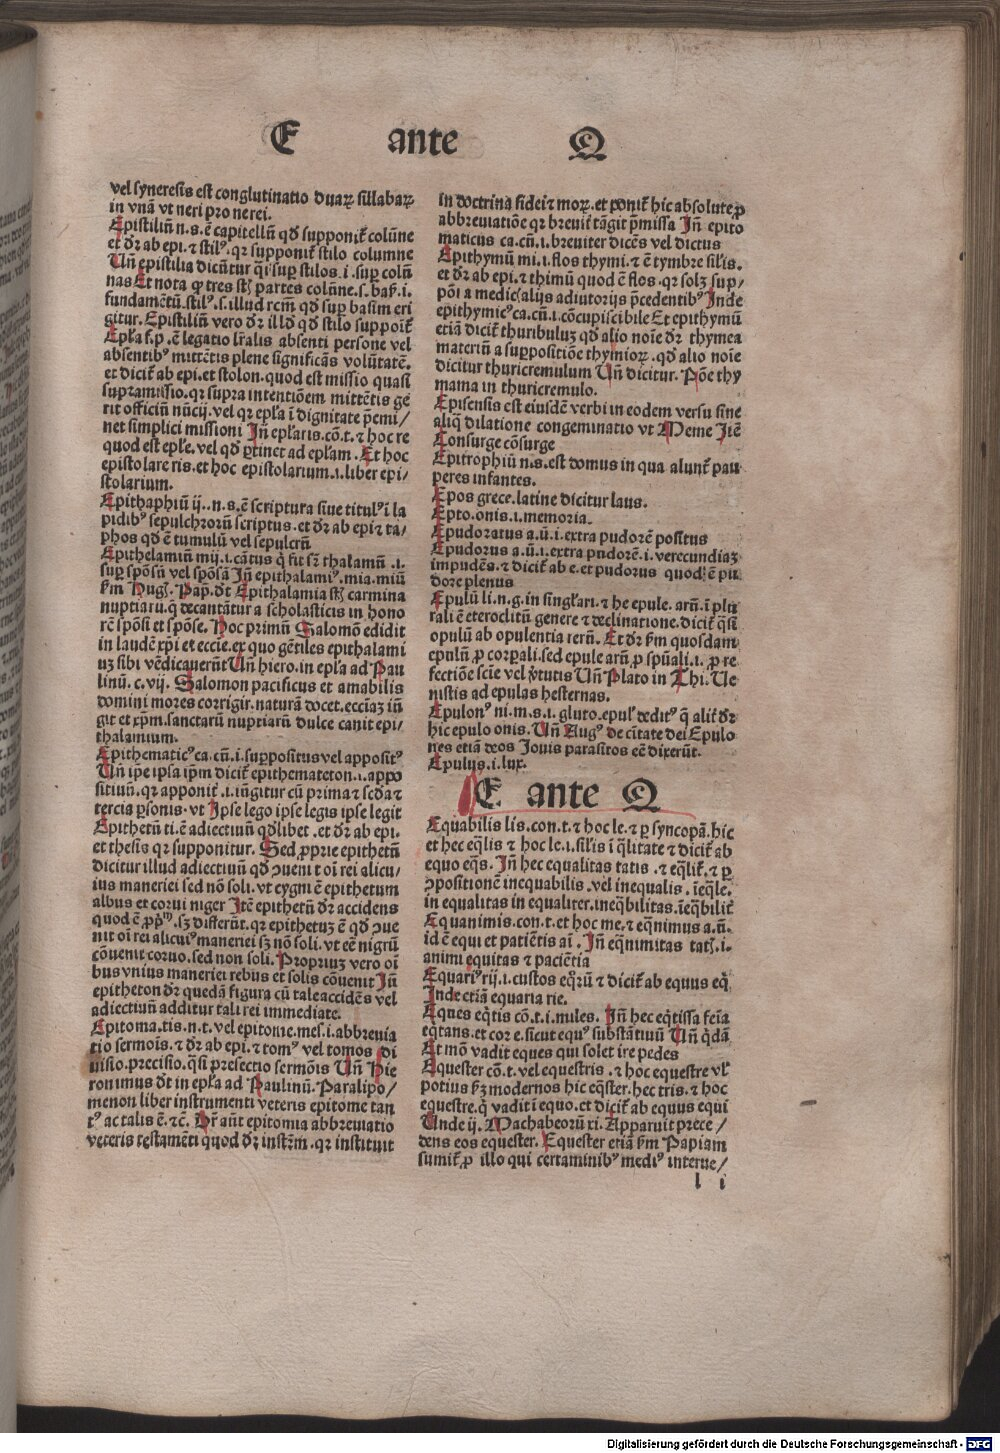 E ante Q
vel syneresis est conglutinatio duaꝝ sillabaꝝ
in vnā vt neri pro nerei.
Epistiliū n.s.ē capitellū qd̄ supponit̄ colūne
et dr̄ ab epi.⁊ stilꝰ.qꝛ supponit̄ stilo columne
Uñ epistilia dicūtur q̄si suꝑ stilos.i.suꝑ colū
nas Et nota ꝙ tres sūt partes colūne.s.basꝭ.i.
fundamētū.stilꝰ.s.illud rcm̄ qd̄ suꝑ basim eri
gitur.Epistiliū vero dr̄ illd̄ qd̄ stilo supponit̄
Epl̄a f.p.ē legatio lr̄alis absenti persone vel
absentibꝰ mittētis plene significās volūtatē.
et dicit̄ ab epi.et stolon.quod est missio quasi
supramissio.qꝛ supra intentiōem mittētis ge
rit officiū nūcij.vel qꝛ epl̄a ī dignitate p̄emi/
net simplici missioni Iñ epl̄aris.cō.t.⁊ hoc re
quod est epl̄e.vel qd̄ ꝑtinet ad epl̄am.Et hoc
epistolare ris.et hoc epistolarium.i.liber epi/
stolarium.
Epithaphiū ij..n.s.ē scriptura siue titulꝰ ī la
pidibꝰ sepulchrorū scriptus.et dr̄ ab epi⁊ ta/
phos qd̄ ē tumulū vel sepulcrū
Epithelamiū mij.i.cātus q̄ fit sr̄ thalamū.i.
suꝑ spōsū vel spōsā Iñ epithalamiꝰ.mia.miū
ẜm Hug.Pap.dt̄ Epithalamia sūt carmina
nuptiaru.q̄ decantātur a scholasticis in hono
rē spōsi et spōse.Hoc primū Salomō edidit
in laudē xp̄i et ecc̄ie.ex quo gētiles epithalami
uꝫ sibi vēdicauerūt Uñ hiero.in epl̄a ad Pau
linū.c.vij.Salomon pacificus et amabilis
domini mores corrigit.naturā docet.ecc̄iaꝫ iū
git et xp̄m.sanctarū nuptiarū dulce canit epi/
thalamium.
Epithematicꝰ ca.cū.i.suppositus vel appositꝰ
Uñ ip̄e ipsa ip̄m dicit̄ epithemateton.i.appo
sitiuū.qꝛ apponit̄.i.iūgitur cū prima⁊ scd̄a⁊
tercia ꝑsonis.vt Ipse lego ipse legis ipse legit
Epithetū ti.ē adiectiuū qd̄libet.et dr̄ ab epi.
et thesis qꝛ supponitur.Sed ꝓprie epithetū
dicitur illud adiectiuū qd̄ ꝯuenit oī rei alicu/
ius maneriei sed nō soli.vt cygni ē epithetum
albus et corui niger Itē epithetū dr̄ accidens
quod ē ꝓpriū.sꝫ differūt.qꝛ epithetuꝫ ē qd̄ ꝯue
nit oī rei alicuiꝰ maneriei sꝫ nō soli.vt eē nigrū
cōuenit coruo.sed non soli.Propriuꝫ vero oī
bus vnius maneriei rebus et solis cōuenit Iñ
epitheton dr̄ quedā figura cū tale accidēs vel
adiectiuū additur tali rei immediate.
Epitoma.tis.n.t.vel epitome.mes.i.abbreuia
tio sermōis.⁊ dr̄ ab epi.⁊ tomꝰ vel tomos di
uisio.p̄cisio.q̄si p̄esectio sermōis Uñ Hie
ronimus dt̄ in epl̄a ad Paulinū.Paralipo/
menon liber instrumenti veteris epitome tan
tꝰ ac talis ē.⁊c̄.Dr̄ aūt epitomia abbreuiatio
veteris testamēti quod dr̄ instrm̄.qꝛ instituit
in doctrina fidei⁊ moꝝ.et ponit̄ hic absolute ꝓ
abbreuiatiōe qꝛ breuit̄ tāgit p̄missa Iñ epito
maticus ca.cū.i.breuiter dicēs vel dictus
Epithymū mi.i.flos thymi.⁊ ē tymbre sil̄is.
et dr̄ ab epi.⁊ thimū quod ē flos.qꝛ solꝫ sup/
pōi a medic alijs adiutorijs p̄cedentibꝰ Inde
epithymicꝰ ca.cū.i.cōcupiscibile Et epithymū
etiā dicit̄ thuribuluꝫ qd̄ alio noīe dr̄ thymea
materiū a suꝑpositiōe thymioꝝ.qd̄ alio noīe
dicitur thuricremulum Uñ dicitur.Pōe thy
mama in thuricremulo.
Episensis est eiusdē verbi in eodem versu sine
aliq̄ dilatione congeminatio vt Meme Itē
Consurge cōsurge
Epitrophiū n.s.est domus in qua alunt̄ pau
peres infantes.
Epos grece.latine dicitur laus.
Epto.onis.i.memoria.
Epudoratus a.ū.i.extra pudorē positus
Epudorus a.ū.i.extra pudorē.i.verecundiaꝫ
impudēs.⁊ dicit̄ ab e.et pudorus quod ē pu
dore plenus
Epulū li.n.g.in singl̄ari.⁊ he epule.arū.ī plu
rali ē eteroclitū genere ⁊ declinatione.dicit̄ q̄si
opulū ab opulentia rerū.Et dr̄ ẜm quosdam
epulū ꝓ corꝑali.sed epule arū ꝓ spūali.i.ꝓ re
fectiōe scīe vel v̄tutis Uñ Plato in Thi.Ue
nistis ad epulas hesternas.
Epulonꝰ ni.m.s.i.gluto.epulꝭ deditꝰ q̄ alit̄ dr̄
hic epulo onis.Uñ Augꝰ de ciuitate dei Epulo
nes etiā deos Iouis parasitos eē dixerūt.
Epulus.i.lux.
E ante Q
Equabilis lis.con.t.⁊ hoc le.⁊ ꝑ syncopā.hic
et hec eq̄lis ⁊ hoc le.i.sil̄is ī q̄litate ⁊ dicit̄ ab
equo eq̄s.Iñ hec equalitas tatis.⁊ eq̄lit̄.⁊ ꝑ
ꝯpositionē inequabilis.vel inequalis.īeq̄le.
inequalitas inequaliter.ineq̄bilitas.īeq̄bilit̄
Equanimis.con.t.et hoc me.⁊ eq̄nimus a.ū.
id ē equi et patiētis aī.Iñ eq̄nimitas tatꝭ.i.
animi equitas ⁊ paciētia
Equariꝰ rij.i.custos eq̄rū ⁊ dicit̄ ab equus eq̄
Inde etiā equaria rie.
Eques eq̄tis cō.t.i.miles.Iñ hec eq̄tissa feīa
eq̄tans.et cor e.sicut equꝰ substātiuū Uñ q̄dā
Et mō vadit eques qui solet ire pedes
Equester cō.t.vel equestris.⁊ hoc equestre vl̄
potius ẜꝫ modernos hic eq̄ster.hec tris.⁊ hoc
equestre.q̄ vadit ī equo.et dicit̄ ab equus equi
Unde ij.Machabeorū xi.Apparuit prece/
dens eos equester.Equester etiā ẜm Papiam
sumit̄ ꝓ illo qui certaminibꝰ mediꝰ interue/
l i
Digitalisierung gefördert durch die Deutsche Forschungsgemeinschaft - DFG